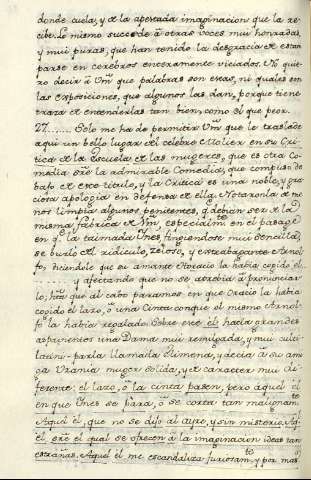 donde cuela; y à la apestada imaginacion que la re-
cibe. Lo mismo succede à otras voces mui honradas,
y mui puras, que han tenido la desgracia de estam
parse en cerebros enceramente viciados. No quie
ro decir à Vm que palabras son estas, ni quales son
las exposiciones, que algunos las dan, porque tiene
traza de entenderlas tan bien, como el que peor.
27...... Solo me ha de permitir Vm que le traslade
aqui un bello lugar del celebre Molier en su Cri-
tica de la Escuela de las mugeres, que es otra Co-
media sobre la admirable Comedia, que compuso de
bajo de este titulo, y la Critica es una noble, y gra
ciosa apologia en defensa de ella. Notaronla de me
nos limpia algunos penitentes, q. debian ser de la
misma fabrica de Vm, especialm. en el pasage
en q. la taimada Ines fingiendose mui sencilla,
se burló del ridiculo, zeloso, y extrabagante Arnol-
fo, diciendole que su amante Horacio la habia copido el
....... y afectando que no se atrebia à pronunciar-
lo; hta que al cabo paramos en que Oracio la habia
copido el lazo, ò una Cinta con que el mismo Arnol-
fo la habia regalado. Sobre este el hacia grandes
aspavientos una Dama mui remilgada, y mui culti
latini-parla llamada Climena, y decia à su ami
ga Urania muger solida, y de caracter mui di-
ferente: el lazo, ò la cinta pasen; pero aquel el
en que Ines se para, ò se corta tan malignam.te
Aquel él, que no se dijo al ayre, y sin misterio, Aql
él, sobre el qual se ofrecen à la imaginacion ideas tan
estrañas. Aquel él me escandaliza furiosam.te, y por mas